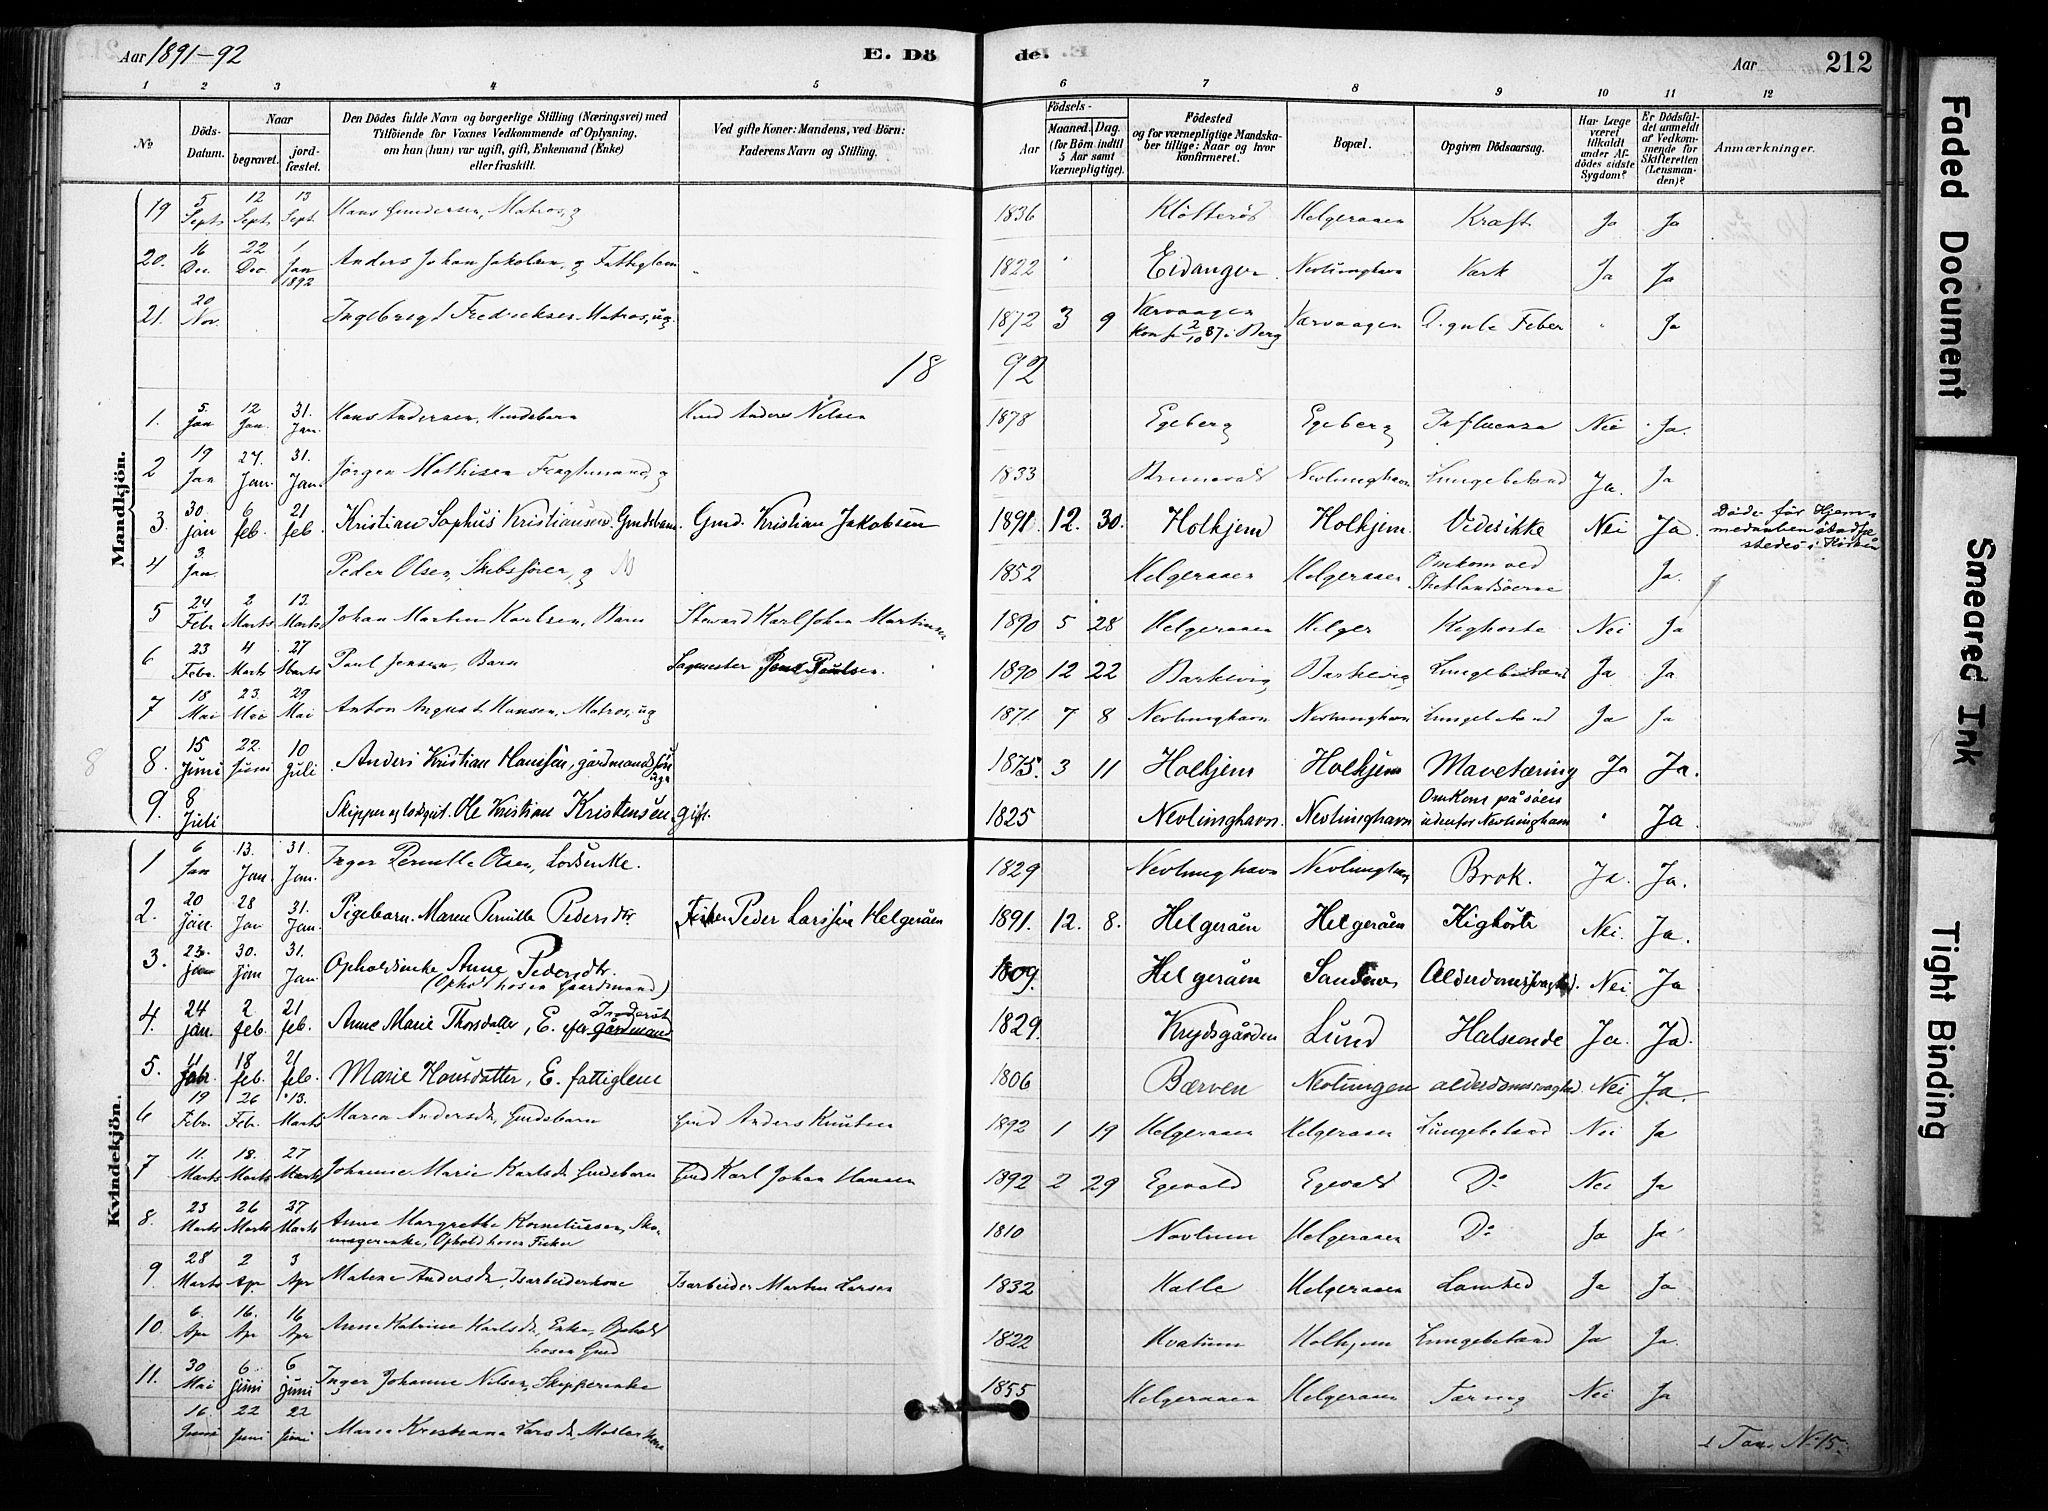 Aar 1891-92
E. Dö
de.
Aar
212
1 2 3 4 5 6 7 8 9 10 11 12
№
Döds-Datum.
Naar
begravet.
jord-fæstet.
Den Dödes fulde Navn og borgerlige Stilling (Næringsvei) med
Tilföiende for Voxnes Vedkommende af Oplysning,
om han (hun) var ugift, gift, Enkemand (Enke)
eller fraskilt.
Ved gifte Koner: Mandens, ved Börn:
Faderens Navn og Stilling.
Födsels-
Aar
Maaned. Dag.
(for Börn indtil
5 Aar samt
Værnepligtige).
Födested
og for værnepligtige Mandska-
ber tillige: Naar og hvor
konfirmeret.
Bopæl.
Opgiven Dödsaarsag.
Har Læge
været
tilkaldt
under Af-
dödes sidste
Sygdom?
Er Dödsfal-
det anmeldt
af Vedkom-
mende for
Skifteretten
(Lensman-
den)?
Anmærkninger.
Mandkjön.
19 5 Sept. 12 Sept. 13 Sept. Hans Gundersen, Matros, g 1836 Helgeraaen Kræft Ja Ja
20. 16 Dec. 22 Dec. 1 Jan 1892 Anders Johan Jakobsen, g Fattiglem 1822 Eidanger Nevlunghavn Værk Ja Ja
21. 20 Nov. Ingebregt Fredriksen Matros, ug. 1872 3 9 Værvaagen Konf. 2/10 87 i Berg Værvaagen gule Feber " Ja
18 92
1. 5. Jan 12 Jan. 31. Jan. Hans Andersen, Husdsbarn Anders Nilsen 1878 Egeberg Egeberg Influenza Nei Ja.
2 19 Jan 27. Jan. 31. Jan. Jörgen Mathisen g 1833 Nevlunghavn Lungebetænd Ja. Ja
3. 30. jan 6 feb. 21 feb. Kristian Sophus Kristiansen. Gmdsbarn. Gmd. Kristian Jakobsen 1891. 12. 30. Holkjem Holkjem. Nei Ja. Døde før Hjem-
medaaben stadfæ-
stedes i Kirken
4 3. Jan. Peder Olsen, Skibsfører, g 1852 Helgeraaen Helgeraaen Omkom ved
Shetlandsöerne Ja.
5 24 Febr 2 Marts 13. Marts Johan Martin Karlsen, Barn Steward Karl Johan Martinsen 1890 5 28 Helgeraaen Helger Kighoste Nei Ja
6 23 Febr. 4 Marts 27 Marts Paul Jensen, Barn Sagmester Jens Paulsen. 1890 12 22 Barkevig Barkevig Lungebetænd Ja Ja
7 18 Mai 23. Mai 29 Mai Anton August Hansen, Matros, ug 1871 7 8 Nevlunghavn Nevlunghavn Lungebetænd Ja Ja
8
8. 15 Juni 22. Juni 10 Juli Anders Kristian Hanssön, gårdmandssön
ugi 1875. 3 11 Holkjem Holkjem Mavetæring Ja Ja.
9. 8 Juli Skipper og Ole Kristian Kristensen gift. 1825 Nevlunghavn. Nevlunghavn Omkom på söen
udenfor Nevlunghavn " Ja
Kvindekjön.
1 6 Jan 13. Jan. 31. Jan. Inger Pernille Olsen, Lodsenke. 1829 Nevlunghavn Nevlunghavn Brok. Ja. Ja.
2. 20 Jan. 28 Jan 31. Jan. Pigebarn. Maren Pernille Pedersdtr. Fisker Peder Larssön Helgeråen 1891. 12. 8. Helgeråen Helgeråen Kighoste Nei. Ja.
3. 23. jan 30. jan 31. Jan. Opholdsenke Anne Pedersdtr.
(Ophold hosen Gaardmand) 1809. Helgeråen Alderdomssvaghed. Nei Ja
4. 24 jan. 2 feb. 21 feb. Anne Marie Thorsdatter, E. efter Inderst
gårdmand 1829. Krydsgården Lund Halsonde Ja. Ja.
5. 11 febr. 18 feb. 21 feb. Marie Hansdatter, E. fattiglem 1806 Bærven Nevlungen alderdomssvaghed Nei Ja.
6 19 Febr. 26 Feb. 13. Marts Maren Andersdr, Gmdsbarn Gmd Anders Knutsen 1892 1 19 Helgeraaen Helgeraaen Lungebetænd Nei Ja
7 11. Marts 18. Marts 27 Marts Johanne Marie Karlsdr Gmdsbarn Gmd Karl Johan Hansen 1892 2 29 Egevald Egevald Do Nei Ja
8. 23 Marts 26 Marts 27 Marts Anne Margrethe Korneliussen, Sko-
magerenke, Ophold hosen Fisker 1810 Nevlunn Helgeraaen Do Ja Ja
9 28 Marts 2 Apr 3 Apr Malene Andersdr, Isarbeiderkone Isarbeider Martin Larsen 1832 Halle Helgeraaen Lamhed Ja Ja
10. 6. Apr 16. Apr 16 Apr Anne Katrine Karlsdr, Enke, Ophold
hosen Gmd 1822 Kvatum Holkjem Lungebetænd Ja Ja.
11. 30 Mai 6 juni 6 juni Inger Johanne Nilsen, Skipperenke 1855 Helgeraaen Helgeraaen Tæring Nei Ja
16 Juni 22 Juni 22 Juni Maren Kristiana Larsdr № 15.
Faded Document
Smeared Ink
Tight Binding